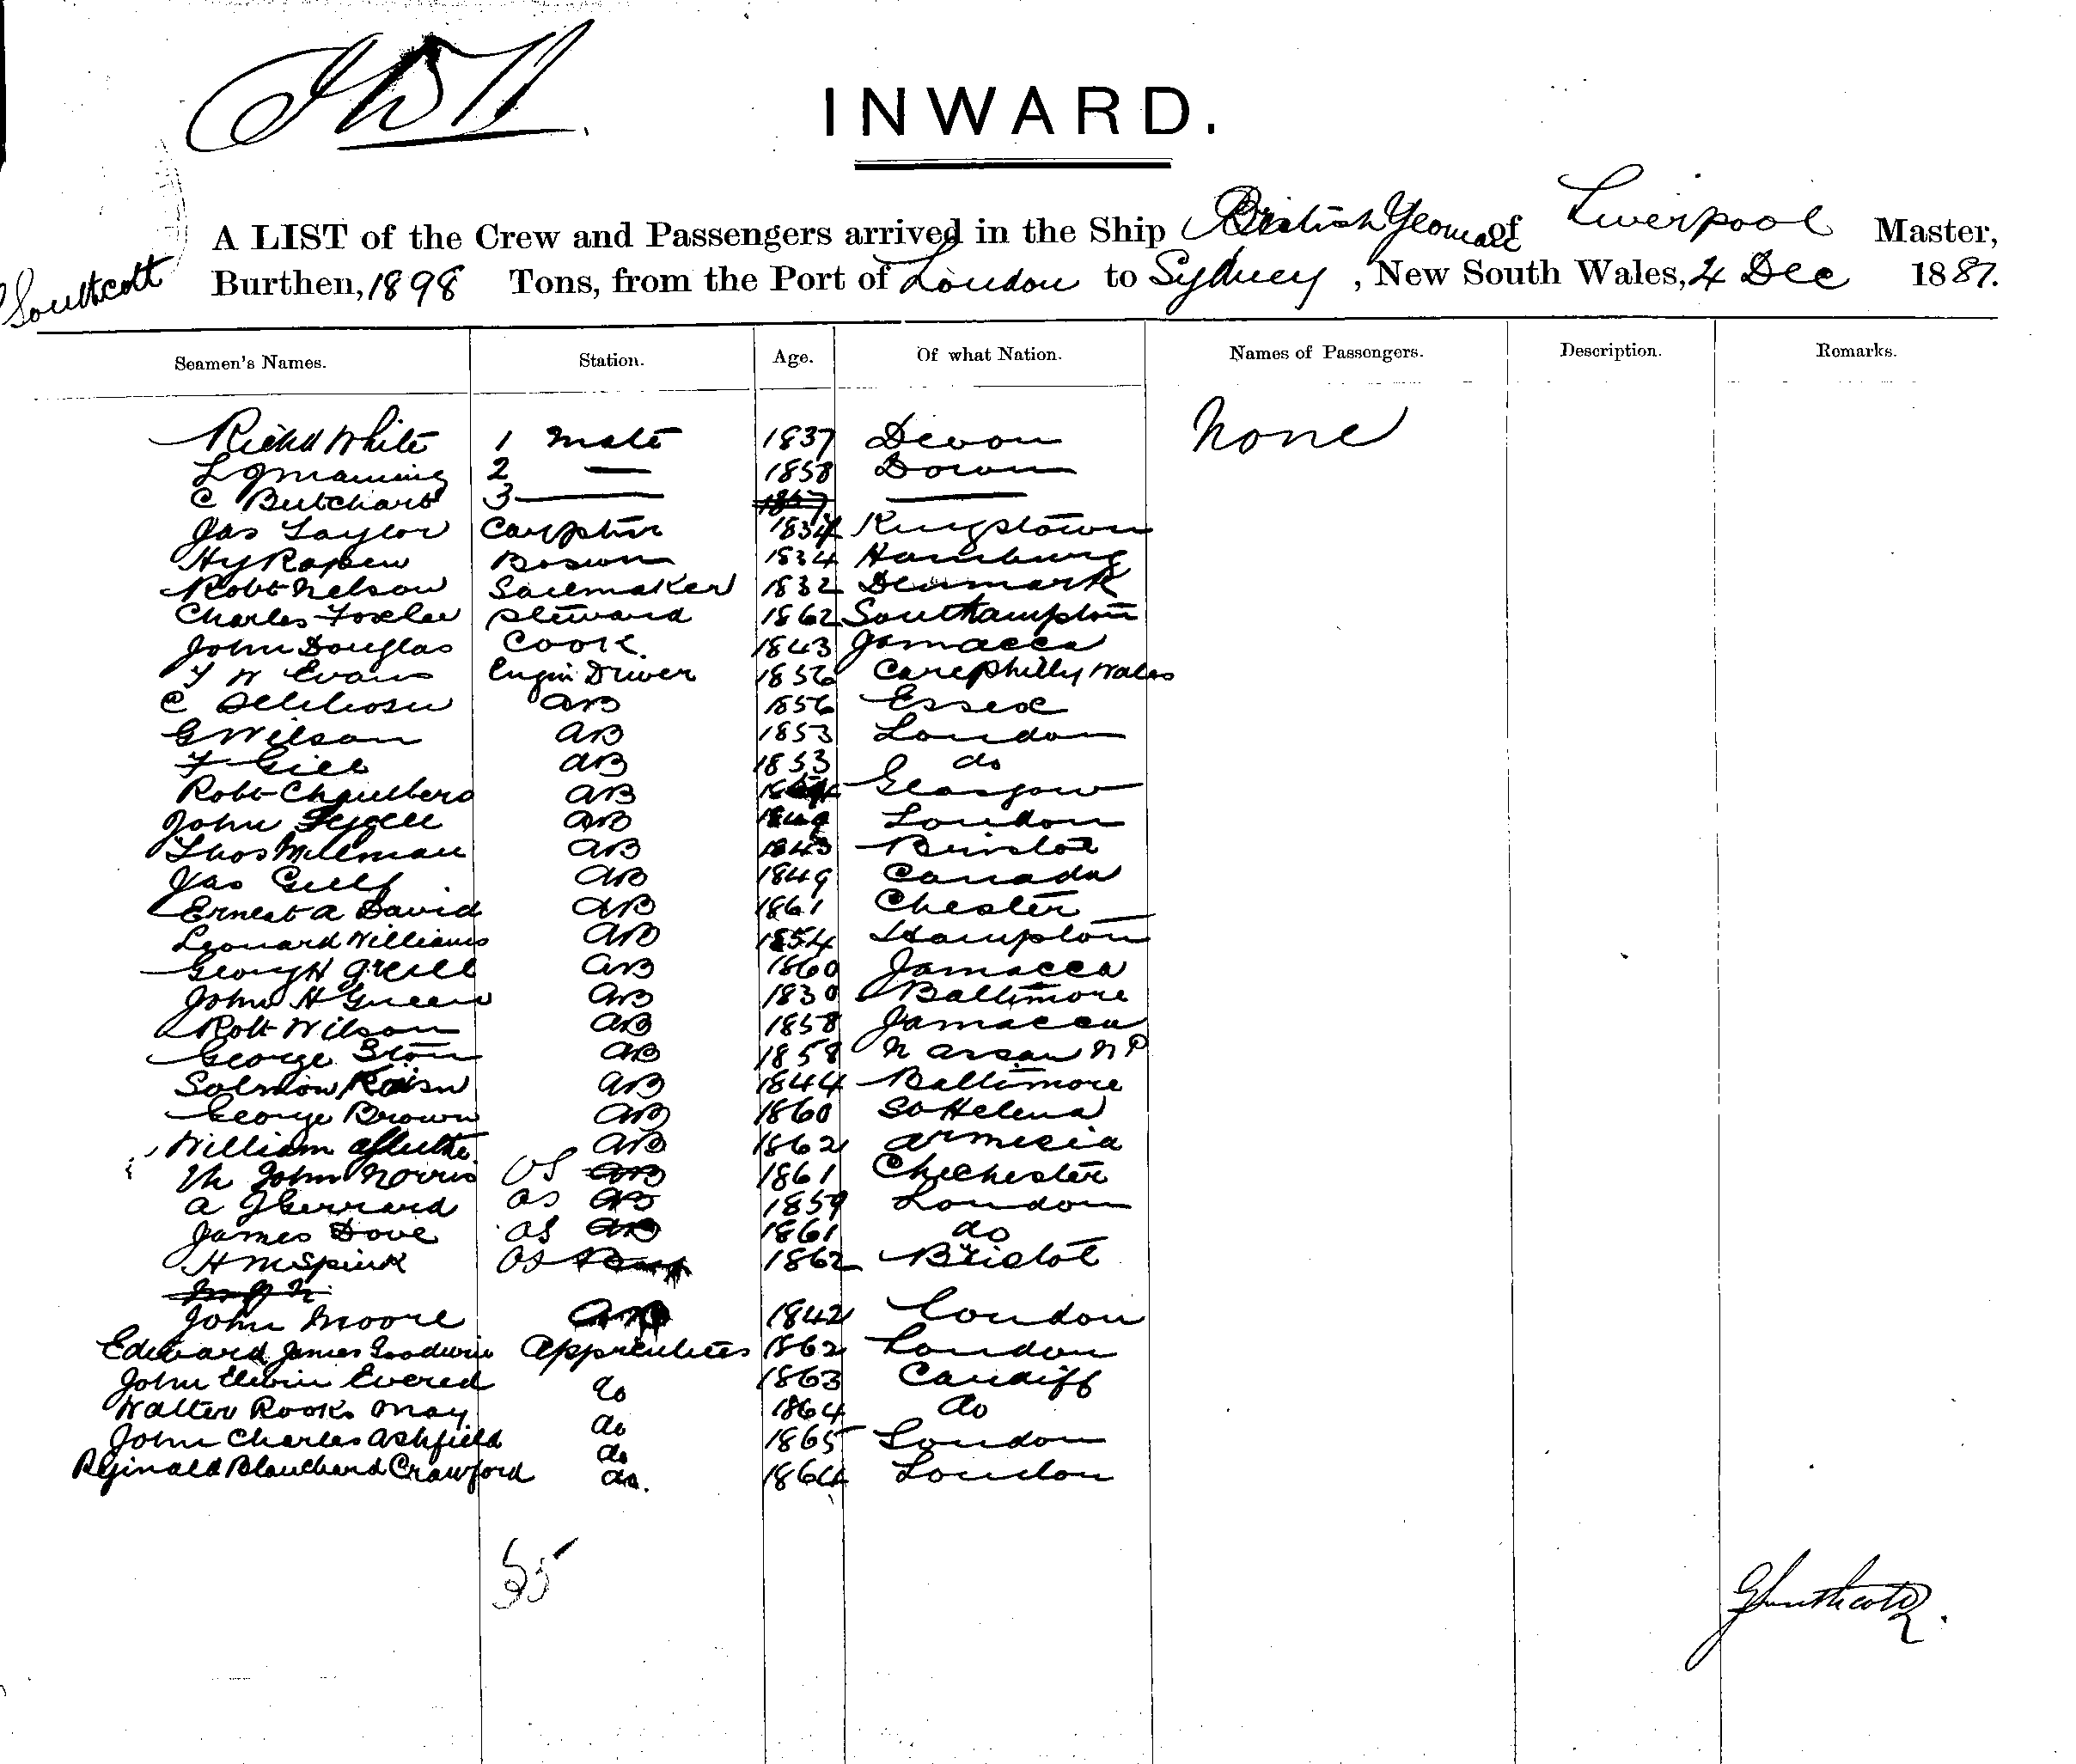 INWARD.
A LIST of the Crew and Passengers arrived in the Ship British Yeoman of Liverpool Master,
Southcott
Burthen, 1898 Tons, from the Port of London to Sydney, New South Wales, 4 Dec 1881.
Seamen's Names. Station. Age. Of what Nation. Names of Passengers. Description. Remarks.
Richd White 1 Mate 1837 Devon None
Manning 2 — 1858 Down
C Butchart 3 — 1857 —
Jas Taylor Carpntr 1834 Kingstown
Hy Bosun 1834 Hamburg
Robt Nelson Sailmaker 1832 Denmark
Charles Foxlee Steward 1862 Southampton
John Douglas Cook 1843 Jamacca
W Evans Engin Driver 1856 Carephilly Wales
C AB 1856 Essex
G Wilson AB 1853 London
F Gill AB 1853 do
Robt AB Glasgow
John AB London
Thos Millman AB 1843 Bristol
Jas AB 1849 Canada
Ernest A David AB 1861 Chester
Leonard Williams AB 1854 Hampton
AB 1860 Jamacca
John H Green AB 1830 Baltimore
Robt Wilson AB 1858 Jamacca
George AB 1858 N P
Solmon AB 1844 Baltimore
George Brown AB 1860 St Helena
William AB 1862
John Norris OS AB 1861 Chichester
A J Gerrard OS AB 1859 London
James Dove OS AB 1861 do
H M Spink OS 1862 Bristol
John Moore AB 1842 London
Edward James Goodwin Apprentices 1862 London
John Elwin Evered do 1863 Cardiff
Walter Rooks May do 1864 do
John Charles Ashfield do 1865 London
Reginald Blanchard Crawford do. 1864 London
35
GSouthcott